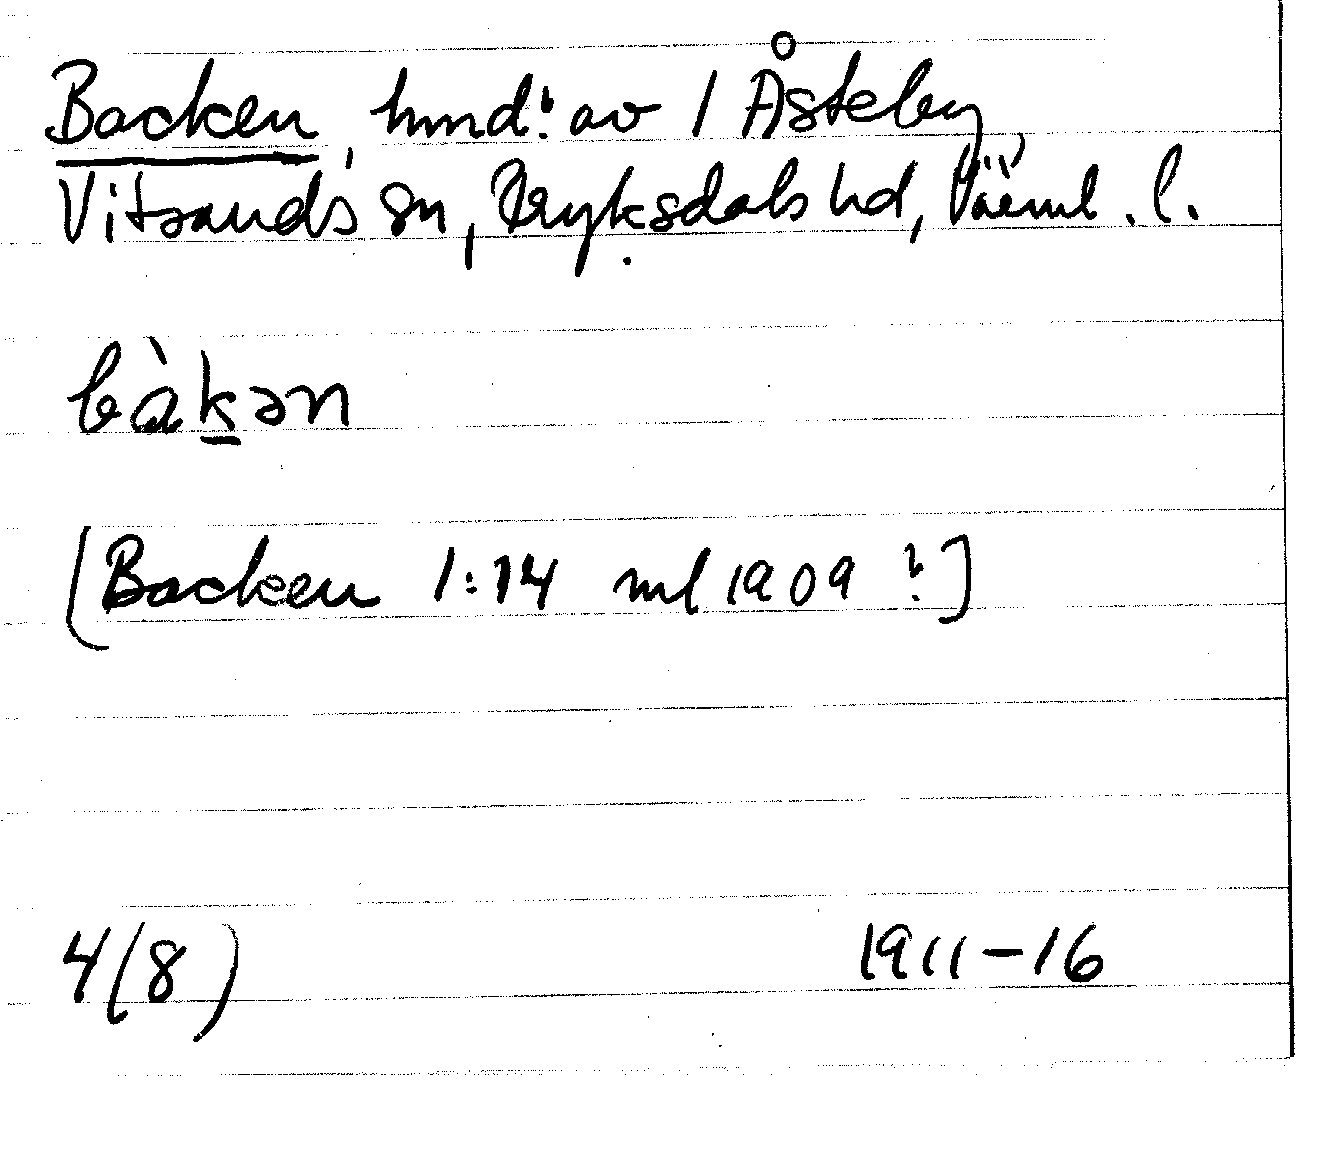 Backen, hmd: av 1 Åsteby,
Vitsands sn, Fryksdals hd, Värml. l.
bàk̠ən
[Backen 1:14 ml 1909 ?]
4(8) 1911–16